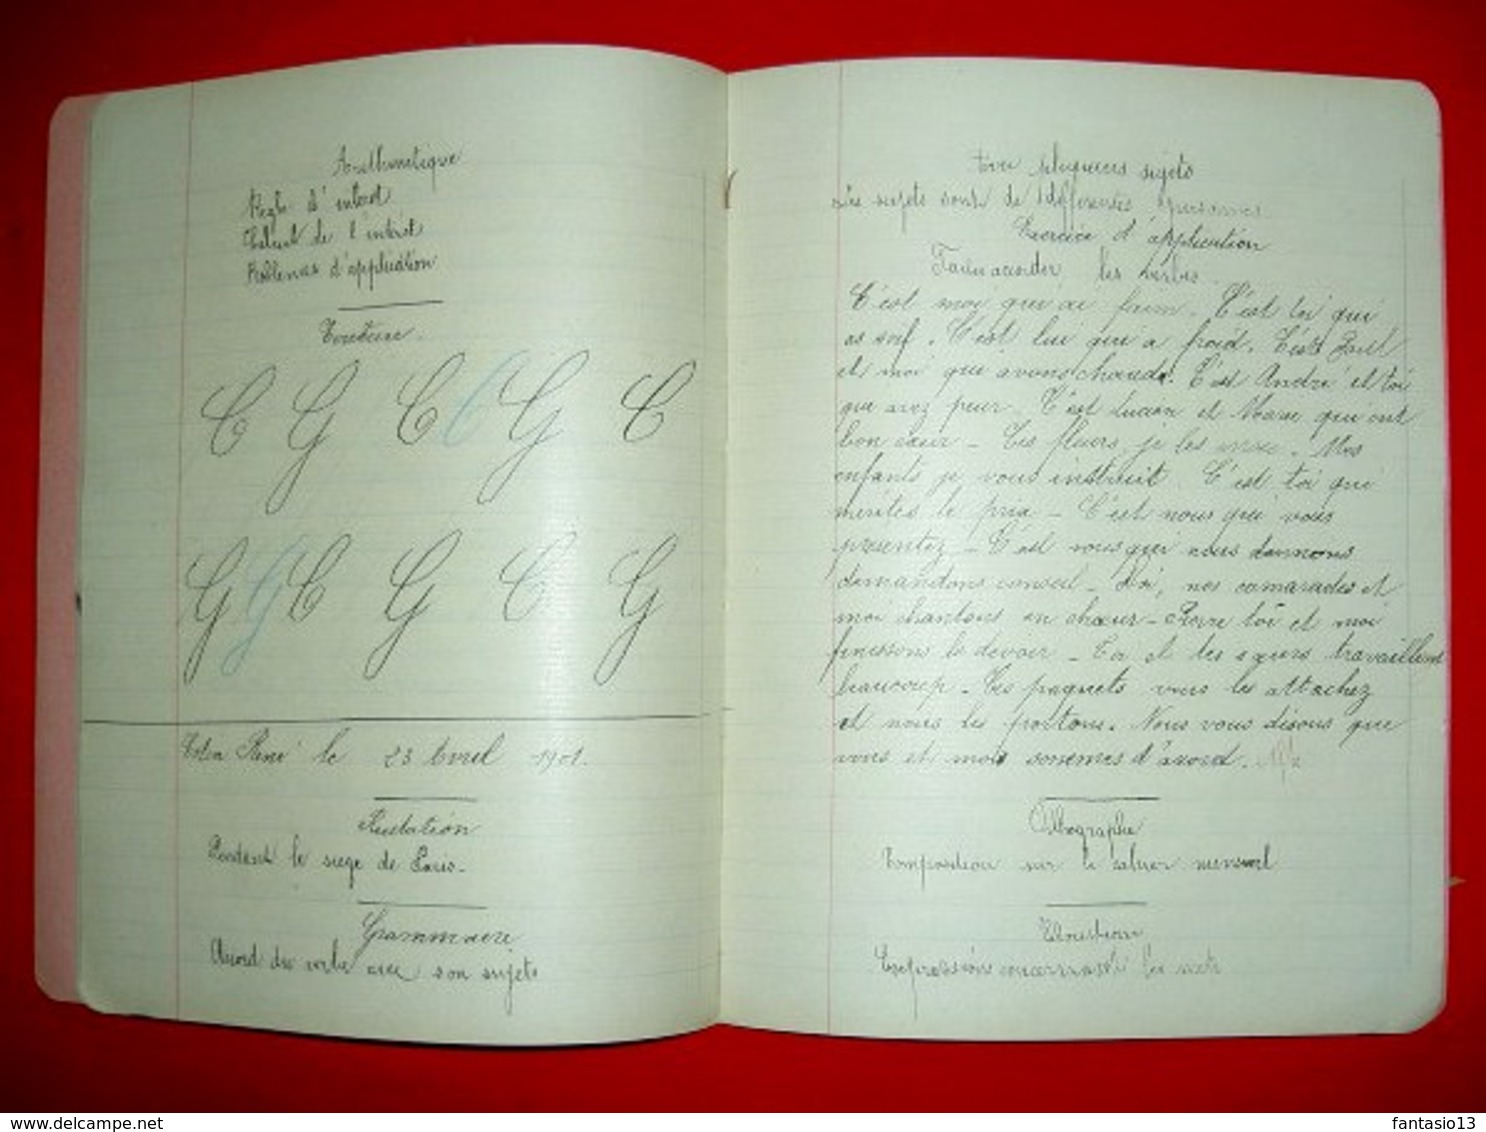 Arithmétique
Règle d'intérêt
Calcul de l'intérêt
Problèmes d'application
Ecriture.
C G C C G C
G G C G C G
René le 23 Avril 1901.
Récitation
Pendant le siège de Paris.
Grammaire
Accord du verbe avec son sujets
plusieurs sujets
Les sujets sont de différentes personnes
Exercice d'application
Faire accorder les verbes.
C'est moi qui ai faim. C'est toi qui
as soif. C'est lui qui a froid. C'est Paul
et moi qui avons chaud. C'est André et toi
qui avez peur. C'est Lucien et Marie qui ont
bon cœur - Tes fleurs, je les Mes
enfants je vous instruit. C'est toi qui
mérites le prix - C'est nous qui vous
présentez - C'est nous qui vous donnons
demandons conseil - Toi, nos camarades et
moi chantons en chœur - Pierre toi et moi
finissons le devoir - Toi et tes sœurs travaillent
beaucoup - Les paquets vous les attachez
et nous les portons. Nous vous disons que
vous et moi sommes d'accord.
Composition sur le cahier mensuel
Expression concernant les
delcampe.net
fantasio13